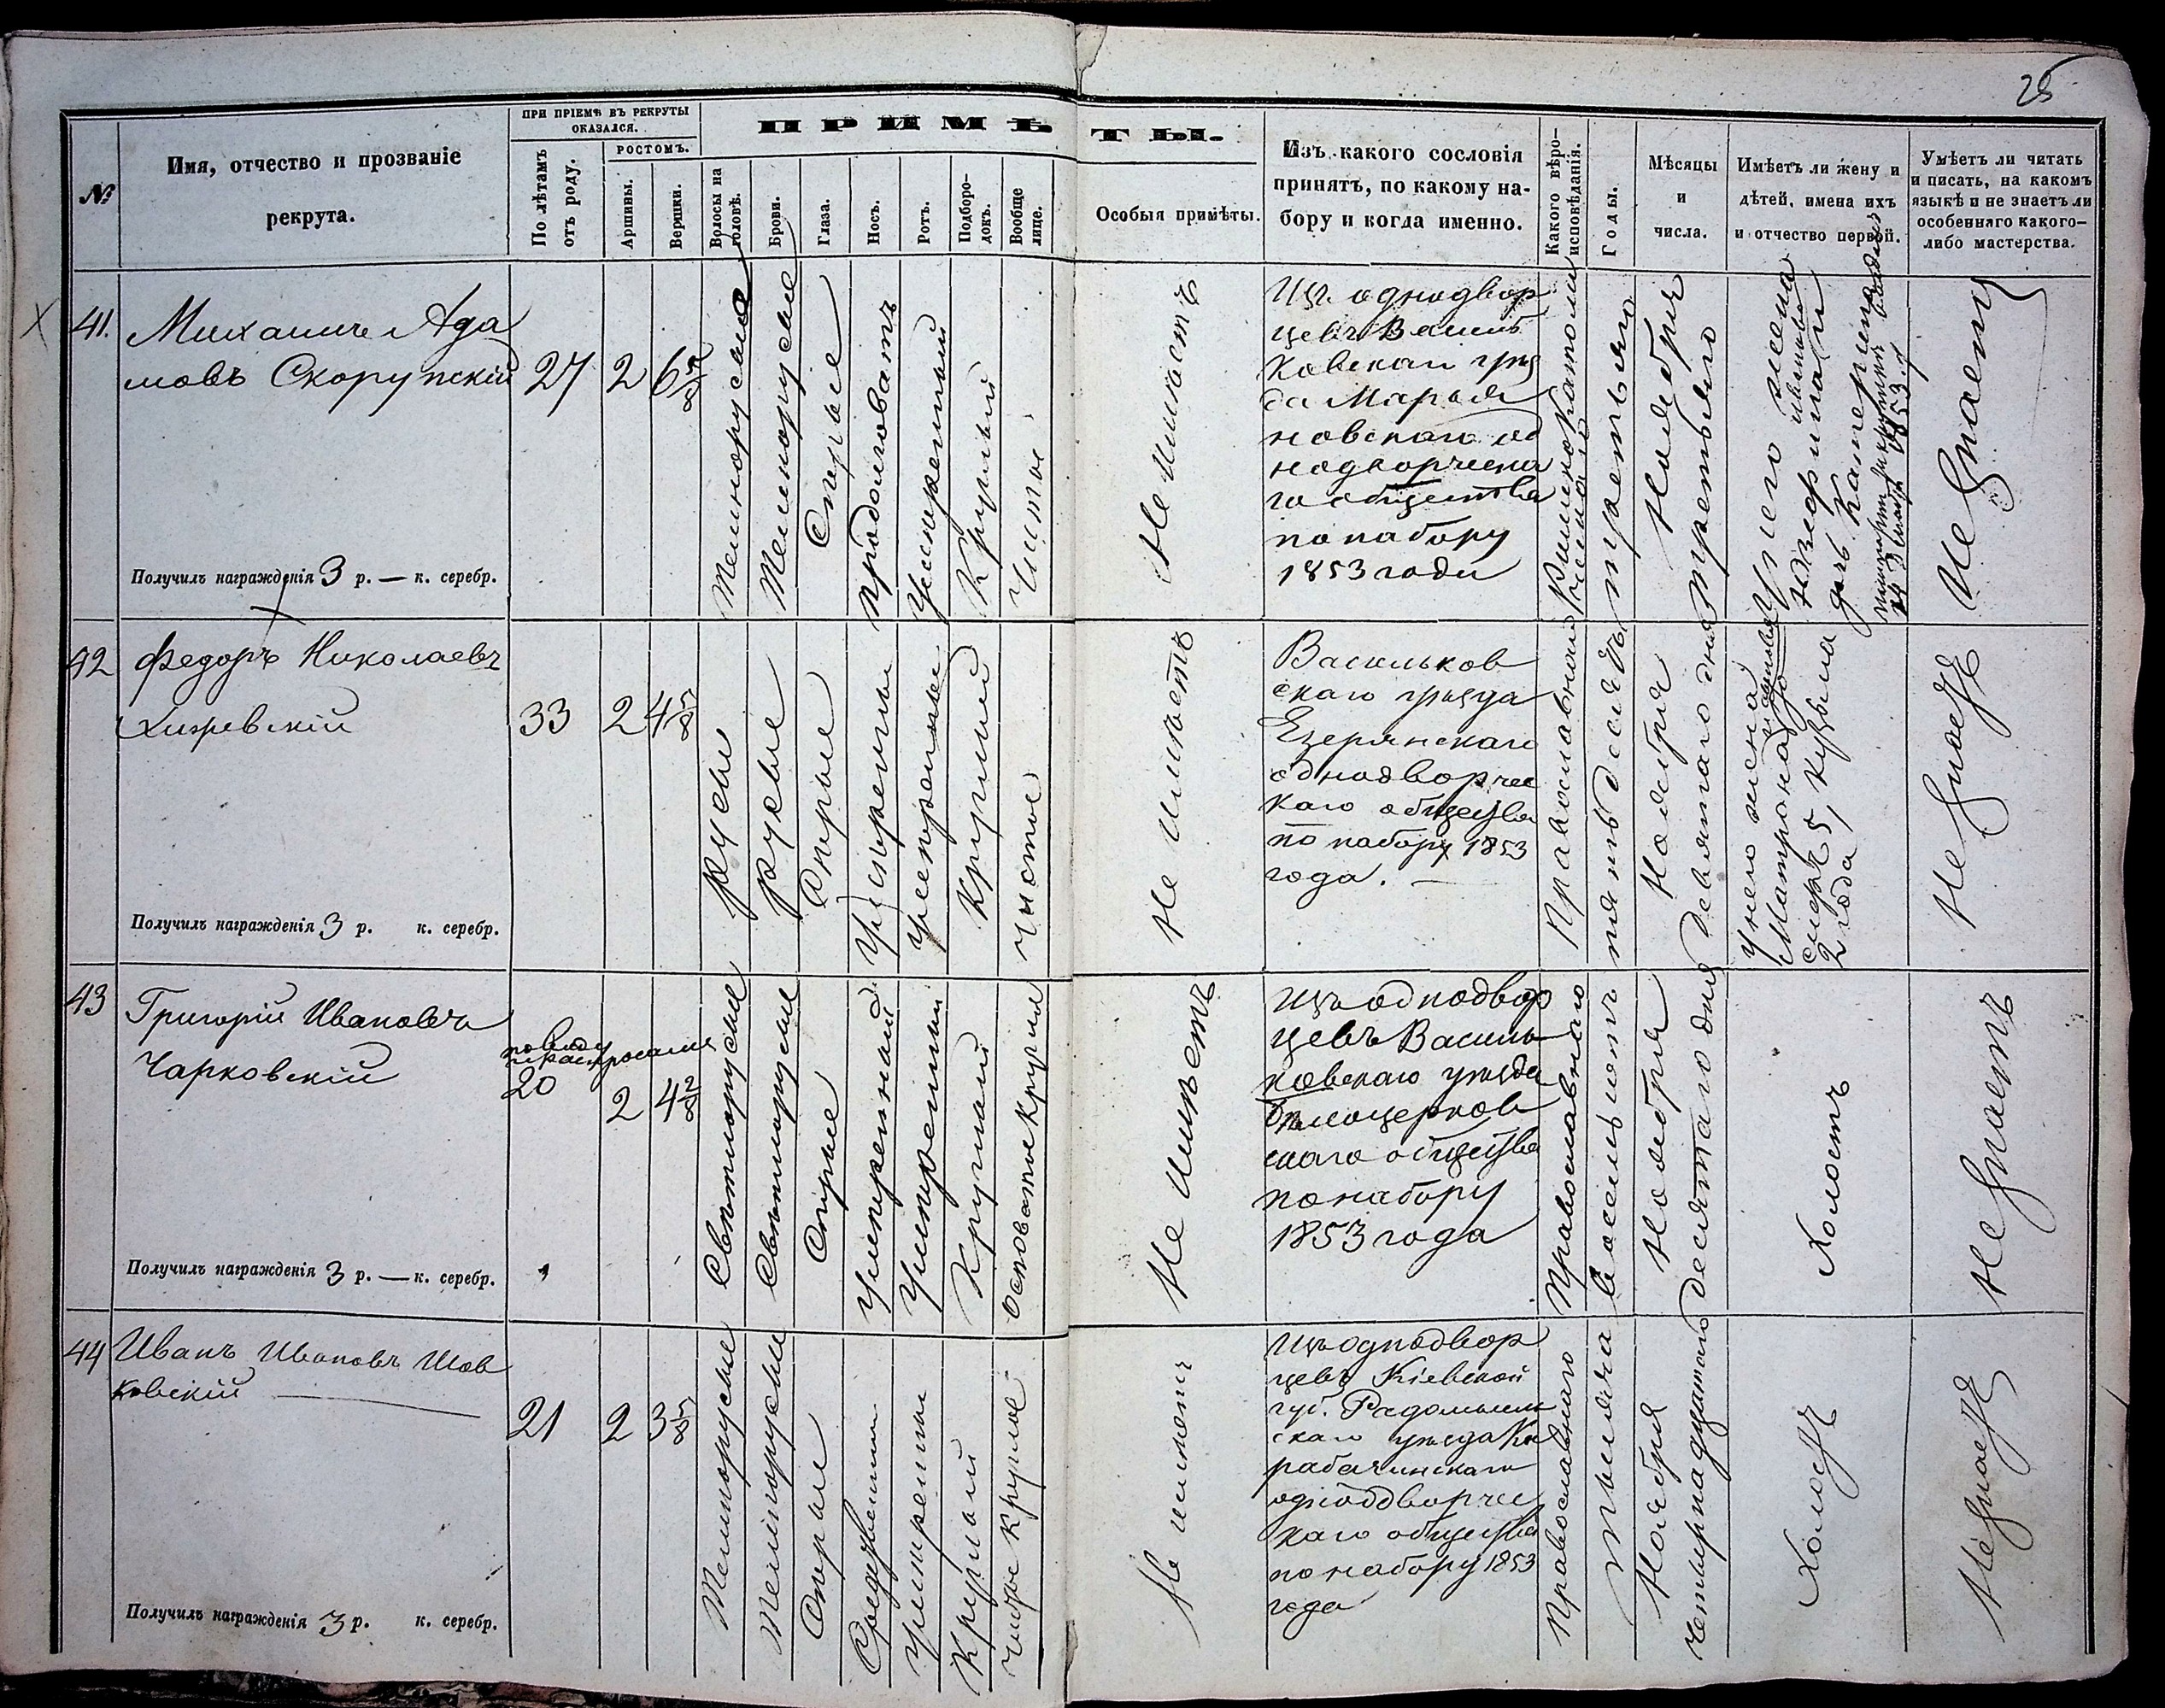 25
№
Имя, отчество и прозваніе
рекрута.
ПРИ ПРІЕМѢ ВЪ РЕКРУТЫ
ОКАЗАЛСЯ.
По лѣтамъ
отъ роду.
РОСТОМЪ.
Аршины.
Вершки.
ПРИМѢТЫ.
Волосы на
головѣ.
Брови.
Глаза.
Носъ.
Ротъ.
Подборо-
докъ.
Вообще
лице.
Особыя примѣты.
Изъ какого сословія
принятъ, по какому на-
бору и когда именно.
Какого вѣро-
исповѣданія.
Годы.
Мѣсяцы
и
числа.
Имѣетъ ли жену и
дѣтей, имена ихъ
и отчество первой.
Умѣетъ ли читать
и писать, на какомъ
языкѣ и не знаетъ ли
особеннаго какого-
либо мастерства.
41.
Михаилъ Ада
мовъ Скорупскій
27
2
6 5/8
Темнорусые
Темнорусые
Сѣрые
продолговатъ
Умѣренный
Круглый
Чистое
Не имѣетъ
Изъ однодвор
цевъ Василь
ковскаго уѣз
да Марья
новскаго од
нодворческа
го общества
по набору
1853 года
Римскокатоли
ческаго
третьяго
Ноября
третьяго
У него жена
Юзефина
дочь Катерина
Не Знаетъ
Получилъ награжденія 3 р. — к. серебр.
42
Федоръ Николаевъ
Хижевскій
33
2
4 5/8
русы
русые
Сѣрые
Умѣренный
умѣренный
Круглый
Чистое
Не имѣетъ
Васильков
скаго уѣзда
Езерянскаго
однодворчес
каго общества
по набору 1853
года.
Православнаго
пять десядъ
Ноября
девятаго дня
У него жена
Матрона
сынъ 5, Кузьма
2 года
Не Знаетъ
Получилъ награжденія 3 р. к. серебр.
43
Григорій Ивановъ
Чарковскій
по виду
20
2
4 2/8
Свѣтлорусые
Свѣтлорусые
Сѣрые
Умѣренный
Умѣренный
Круглый
Осповатое круглое
Не имѣетъ
Изъ однодвор
цевъ Василь
ковскаго уѣзда
бѣлоцерков
скаго общества
по набору
1853 года
Православнаго
Ноября
десятаго дня
Холостъ
Не Знаетъ
Получилъ награжденія 3 р. — к. серебр.
44
Иванъ Ивановъ Шов
ковскій
21
2
3 5/8
Темнорусые
Темнорусые
Сѣрые
Средственный
умѣренный
Круглый
Чистое круглое
Не имѣетъ
Изъ однодвор
цевъ Кіевской
губ. Радомысль
скаго уѣзда Ка
рабачинскаго
однодворчес
каго общества
по набору 1853
года
Православнаго
тысяча
Ноября
четырнадцатаго
Холостъ
Не Знаетъ
Получилъ награжденія 3 р. к. серебр.